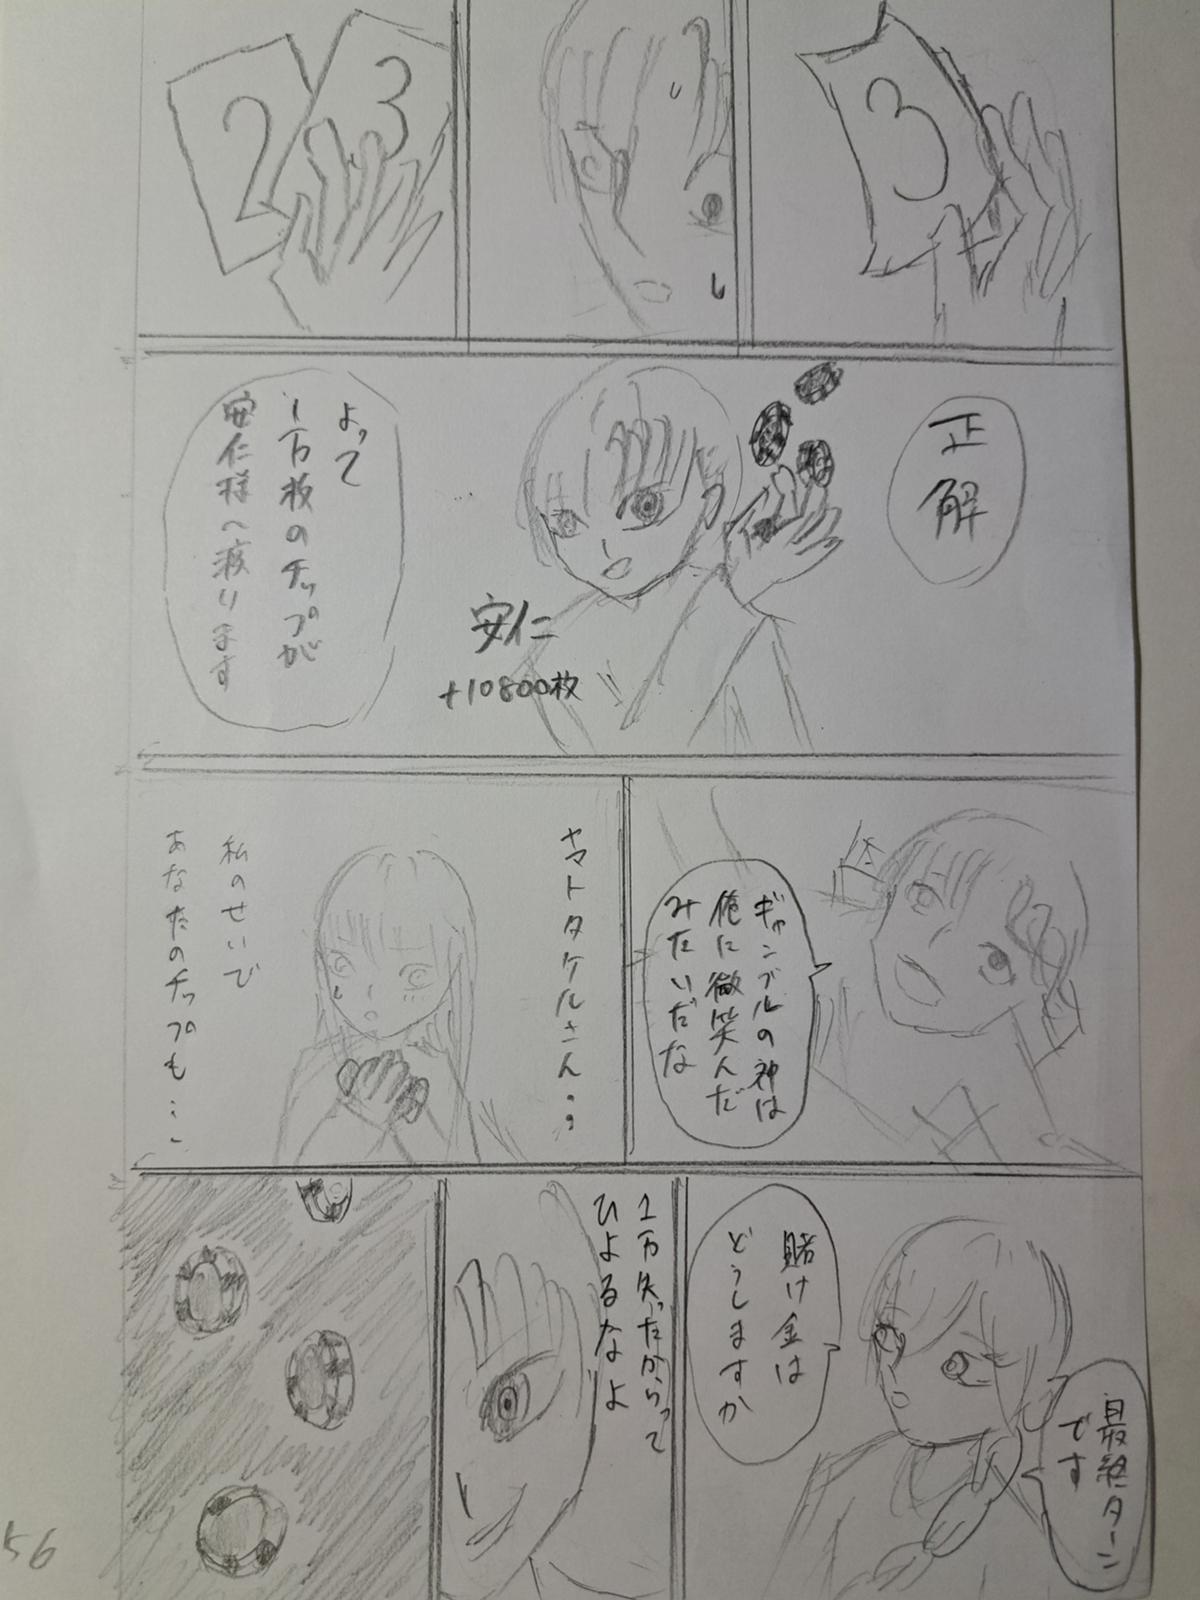 3
3
2
正解
安仁
+10800枚
よって
1万枚のチップが
安仁様へ渡ります
ギャンブルの神は
俺に微笑んだ
みたいだな
ヤマトタケルさん..
私のせいで
あなたのチップも...
最終ターン
です
賭け金は
どうしますか
1万失ったからって
ひよるなよ
56